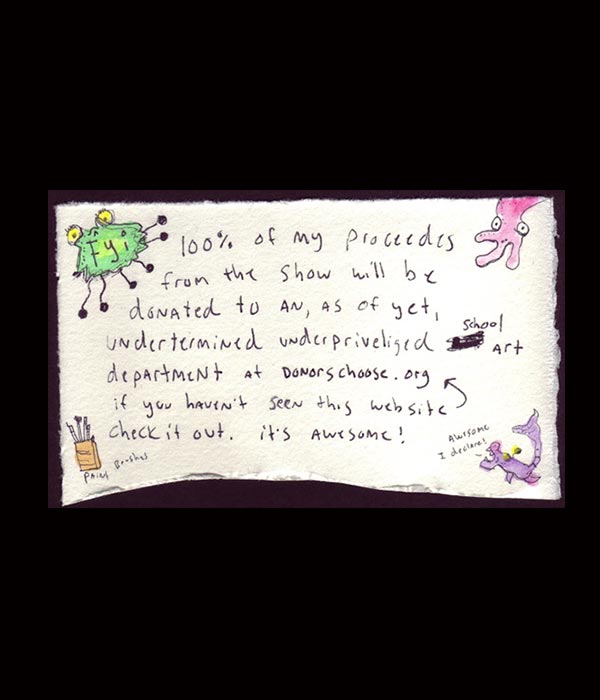 fyi
100% of my proceedes
from the show will be
donated to an, as of yet,
school
undertermined underpriveliged art
department at donorschoose.org
if you haven't seen this website
check it out. it's awesome!
Awesome
I declare!
Paint Brushes